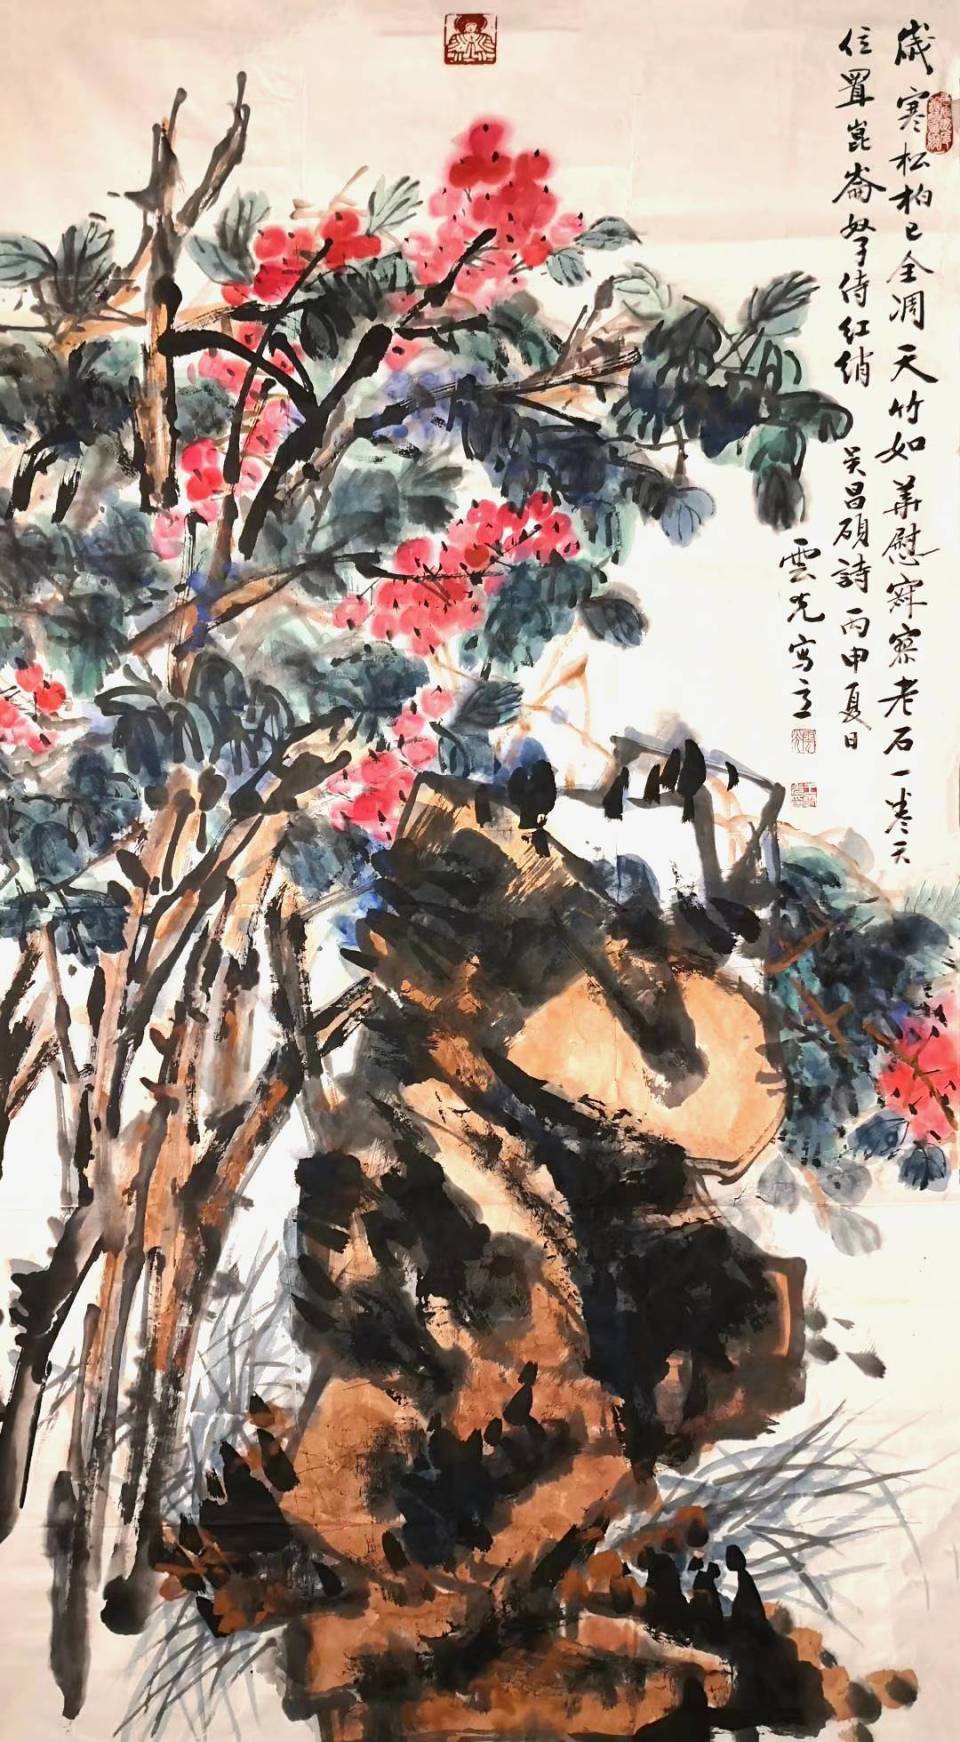 歲寒松柏已全凋天竹如華慰寂寥老石一卷天
位置崑崙奴侍紅綃 吴昌碩詩 丙申夏日
雲光寫意